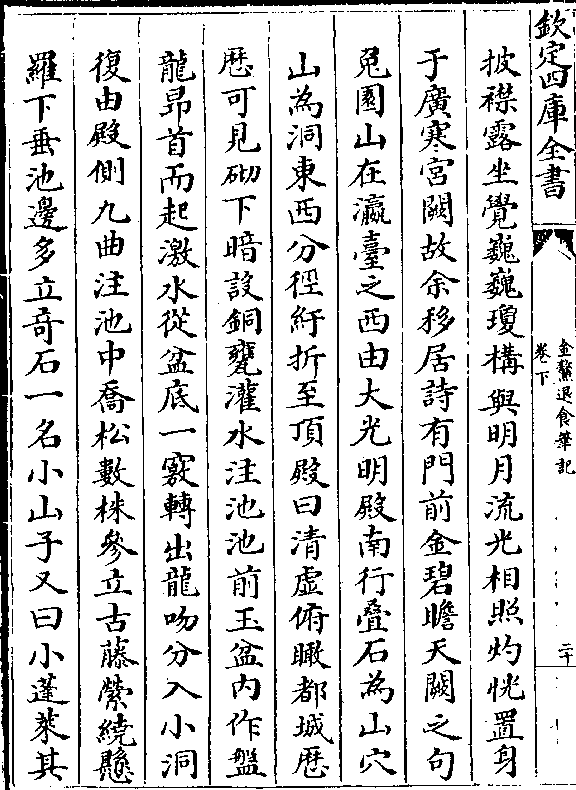 欽定四庫全書
金鰲退食筆記
卷下
二十
披襟露坐覺巍巍瓊構與明月流光相照灼恍置身
于廣寒宮闕故余移居詩有門前金碧瞻天闕之句
兎園山在瀛臺之西由大光明殿南行疊石為山穴
山為洞東西分徑紆折至頂殿曰清虛俯瞰都城歴
歴可見砌下暗設銅甕灌水注池池前玉盆内作盤
龍昻首而起激水從盆底一竅轉出龍吻分入小洞
復由殿側九曲注池中喬松數株參立古藤縈繞懸
羅下垂池邊多立竒石一名小山子又曰小蓬萊其